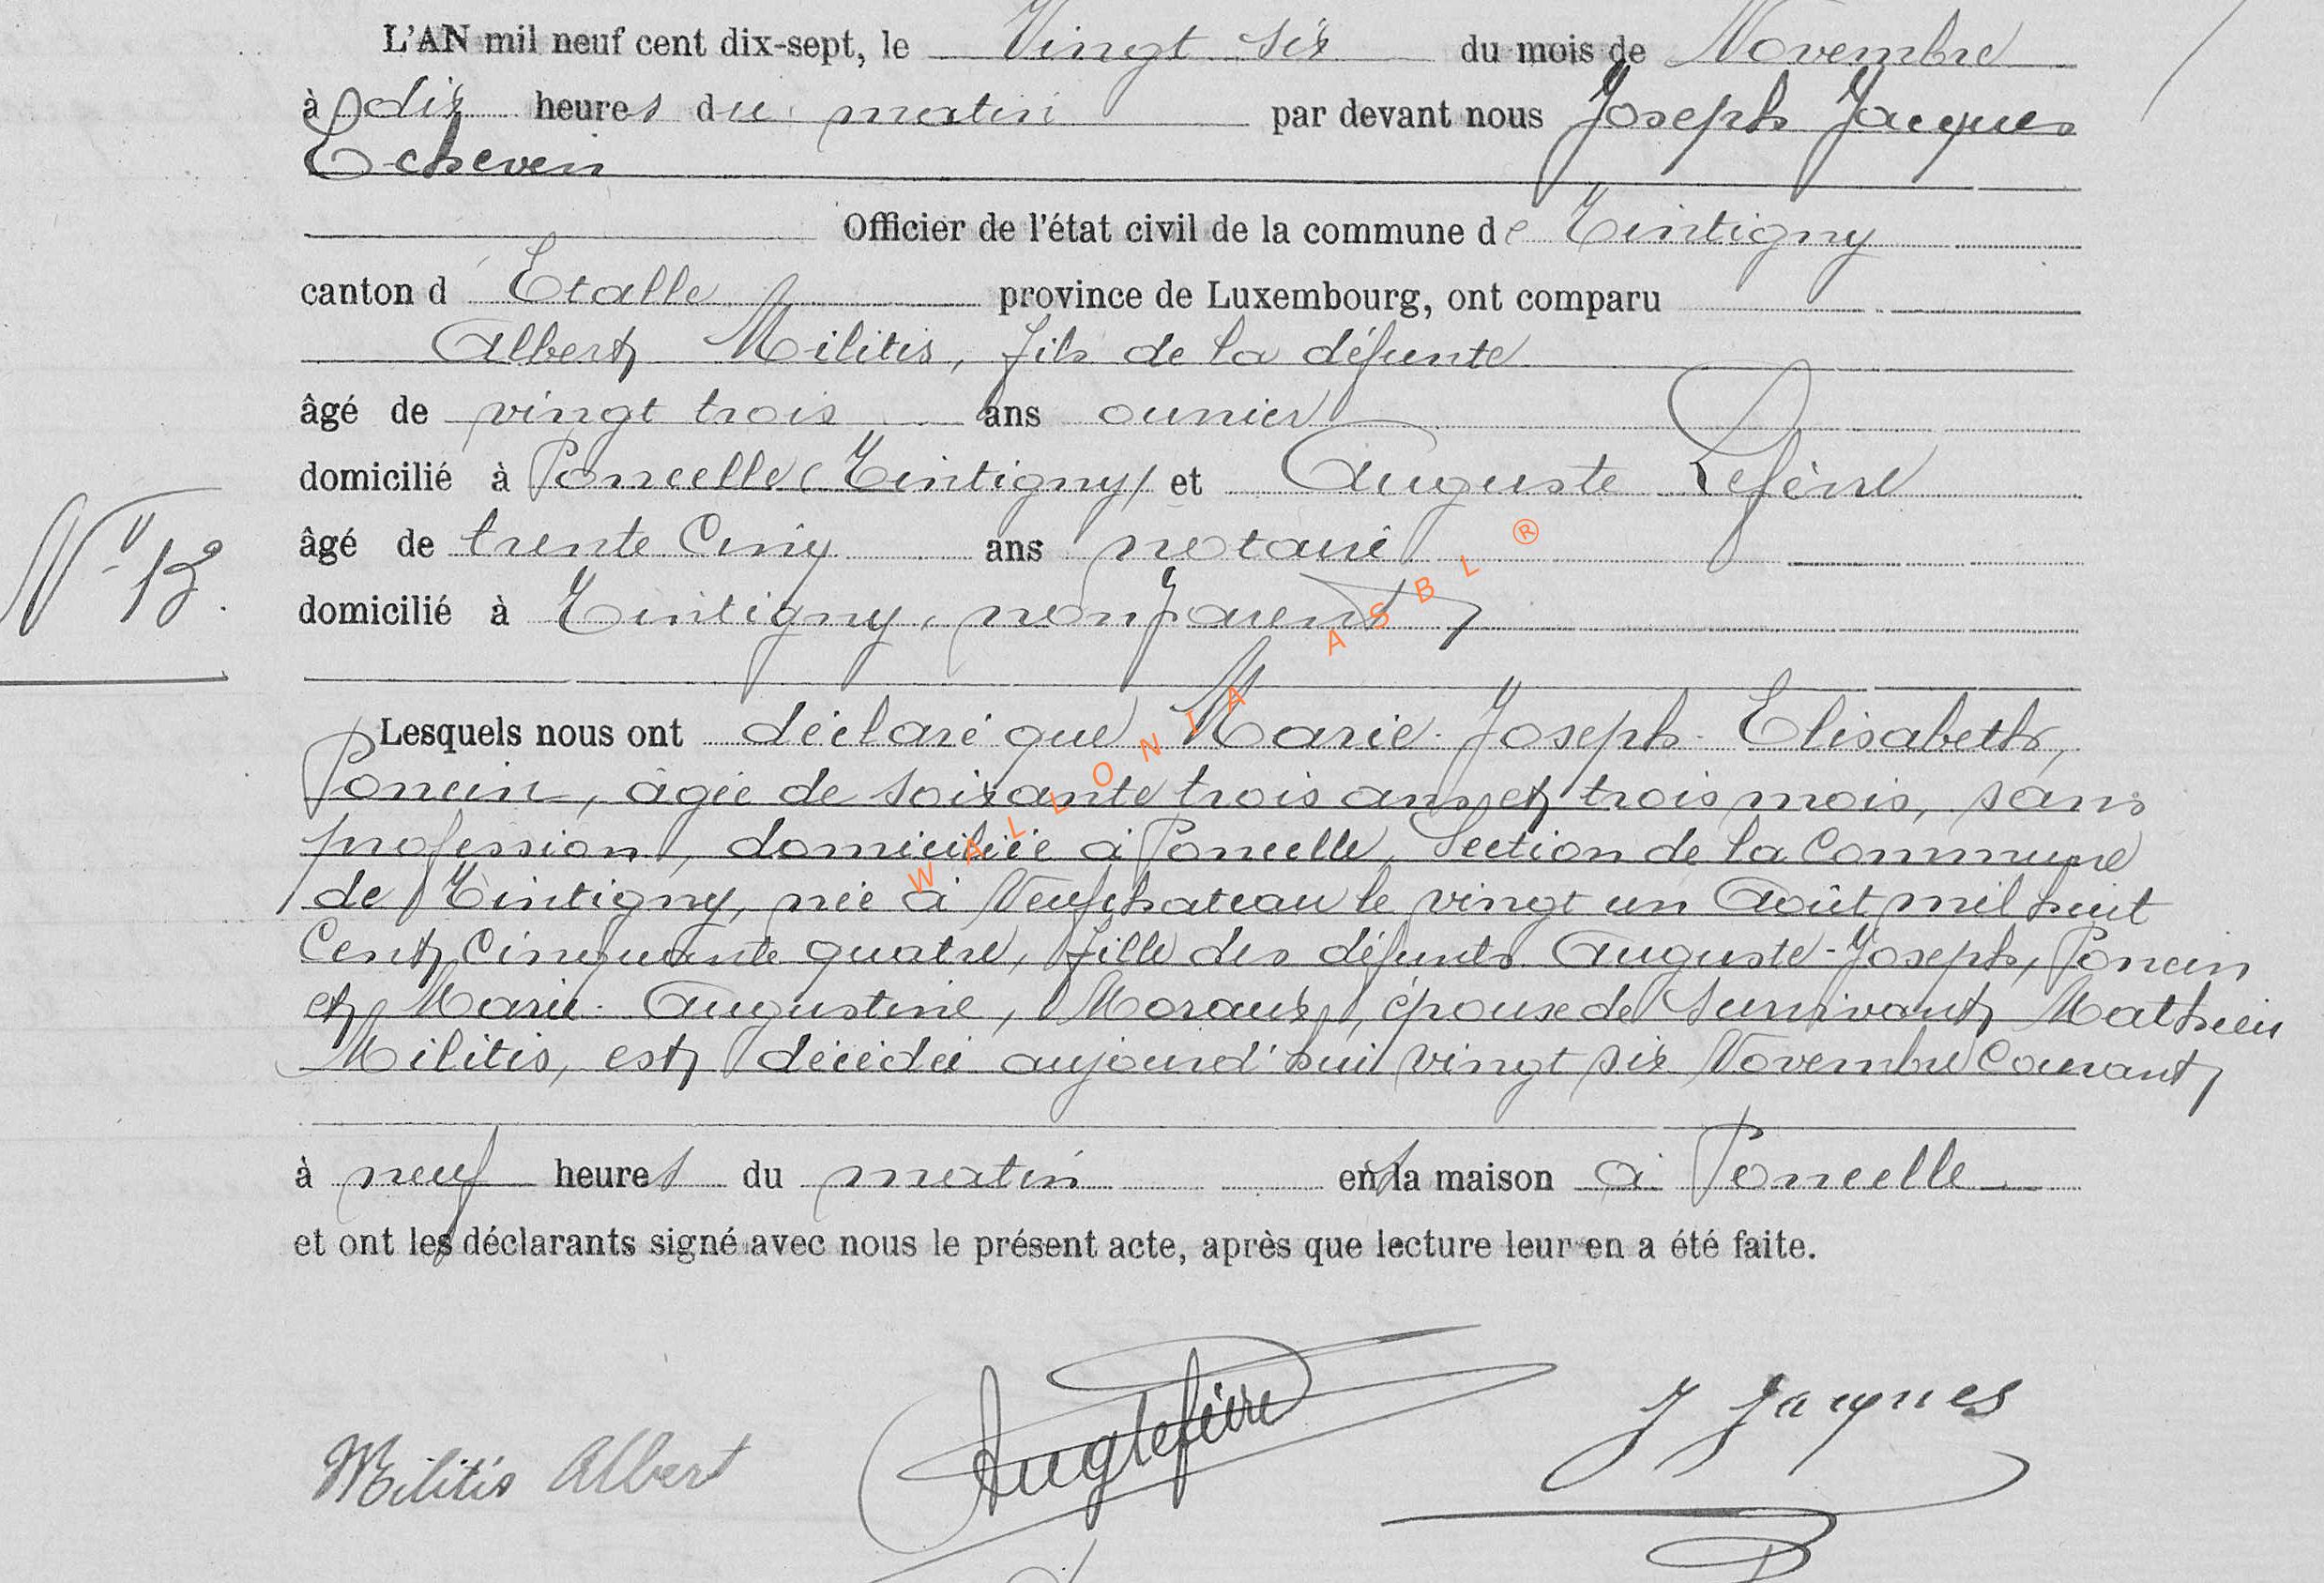 L'AN mil neuf cent dix-sept, le Vingt six du mois de Novembre
à dix heures du matin par devant nous Joseph Jacques
Echevin
Officier de l'état civil de la commune de Tintigny
canton d'Etalle province de Luxembourg, ont comparu
Albert Militis, fils de la défunte
âgé de vingt trois ans ouvrier
domicilié à Poncelle (Tintigny) et Auguste Lefèvre
âgé de trente cinq ans notaire
domicilié à Tintigny, non parent
N° 13.
Lesquels nous ont déclaré que Marie-Joseph-Elisabeth,
Poncin, âgée de soixante trois ans et trois mois, sans
profession, domiciliée à Poncelle, Section de la Commune
de Tintigny, née à Neufchateau le vingt un Août mil huit
Cent Cinquante quatre, fille des défunts Auguste-Joseph, Poncin
et Marie-Augustine, Moraux, épouse de Survivant Mathieu
Militis, est décédée aujourd'hui vingt six Novembre Courant
à neuf heures du matin en sa maison à Poncelle
et ont les déclarants signé avec nous le présent acte, après que lecture leur en a été faite.
Militis Albert Aug Lefèvre J Jacques
WALLONIA ASBL ®